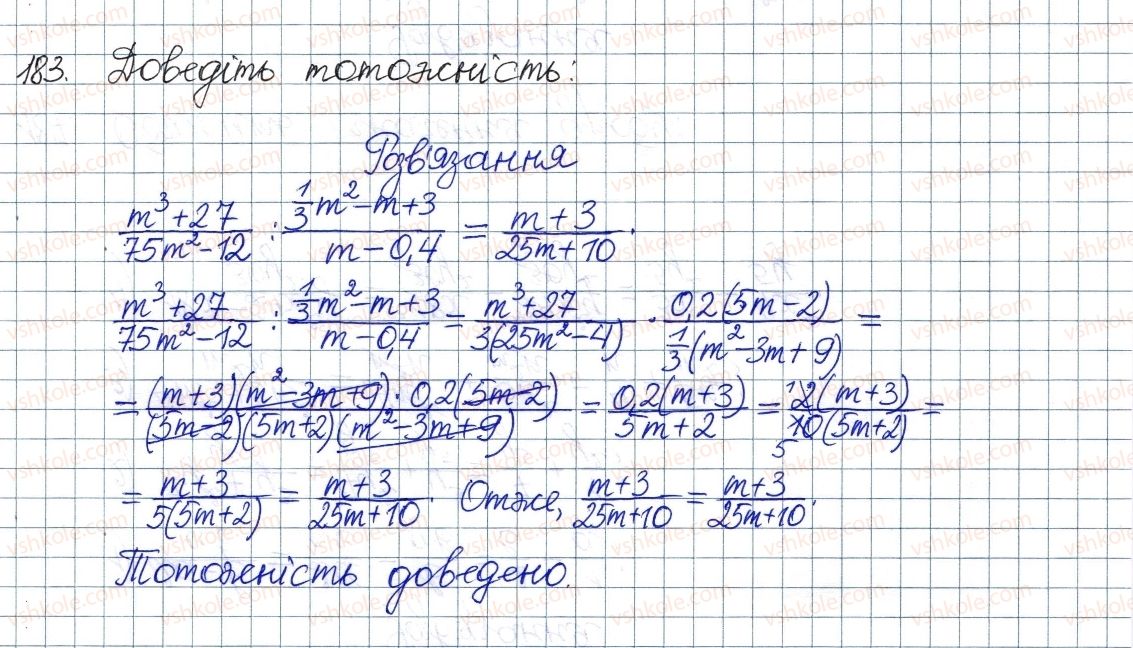 183. Доведіть тотожність:
Розв'язання
(m³+27)/(75m²-12) : (1/3m²-m+3)/(m-0,4) = (m+3)/(25m+10).
(m³+27)/(75m²-12) : (1/3m²-m+3)/(m-0,4) = (m³+27)/(3(25m²-4)) · (0,2(5m-2))/(1/3(m²-3m+9)) =
= ((m+3)(m²-3m+9)·0,2(5m-2))/((5m-2)(5m+2)(m²-3m+9)) = (0,2(m+3))/(5m+2) = (2(m+3))/(10(5m+2)) =
= (m+3)/(5(5m+2)) = (m+3)/(25m+10). Отже, (m+3)/(25m+10) = (m+3)/(25m+10).
Тотожність доведено.